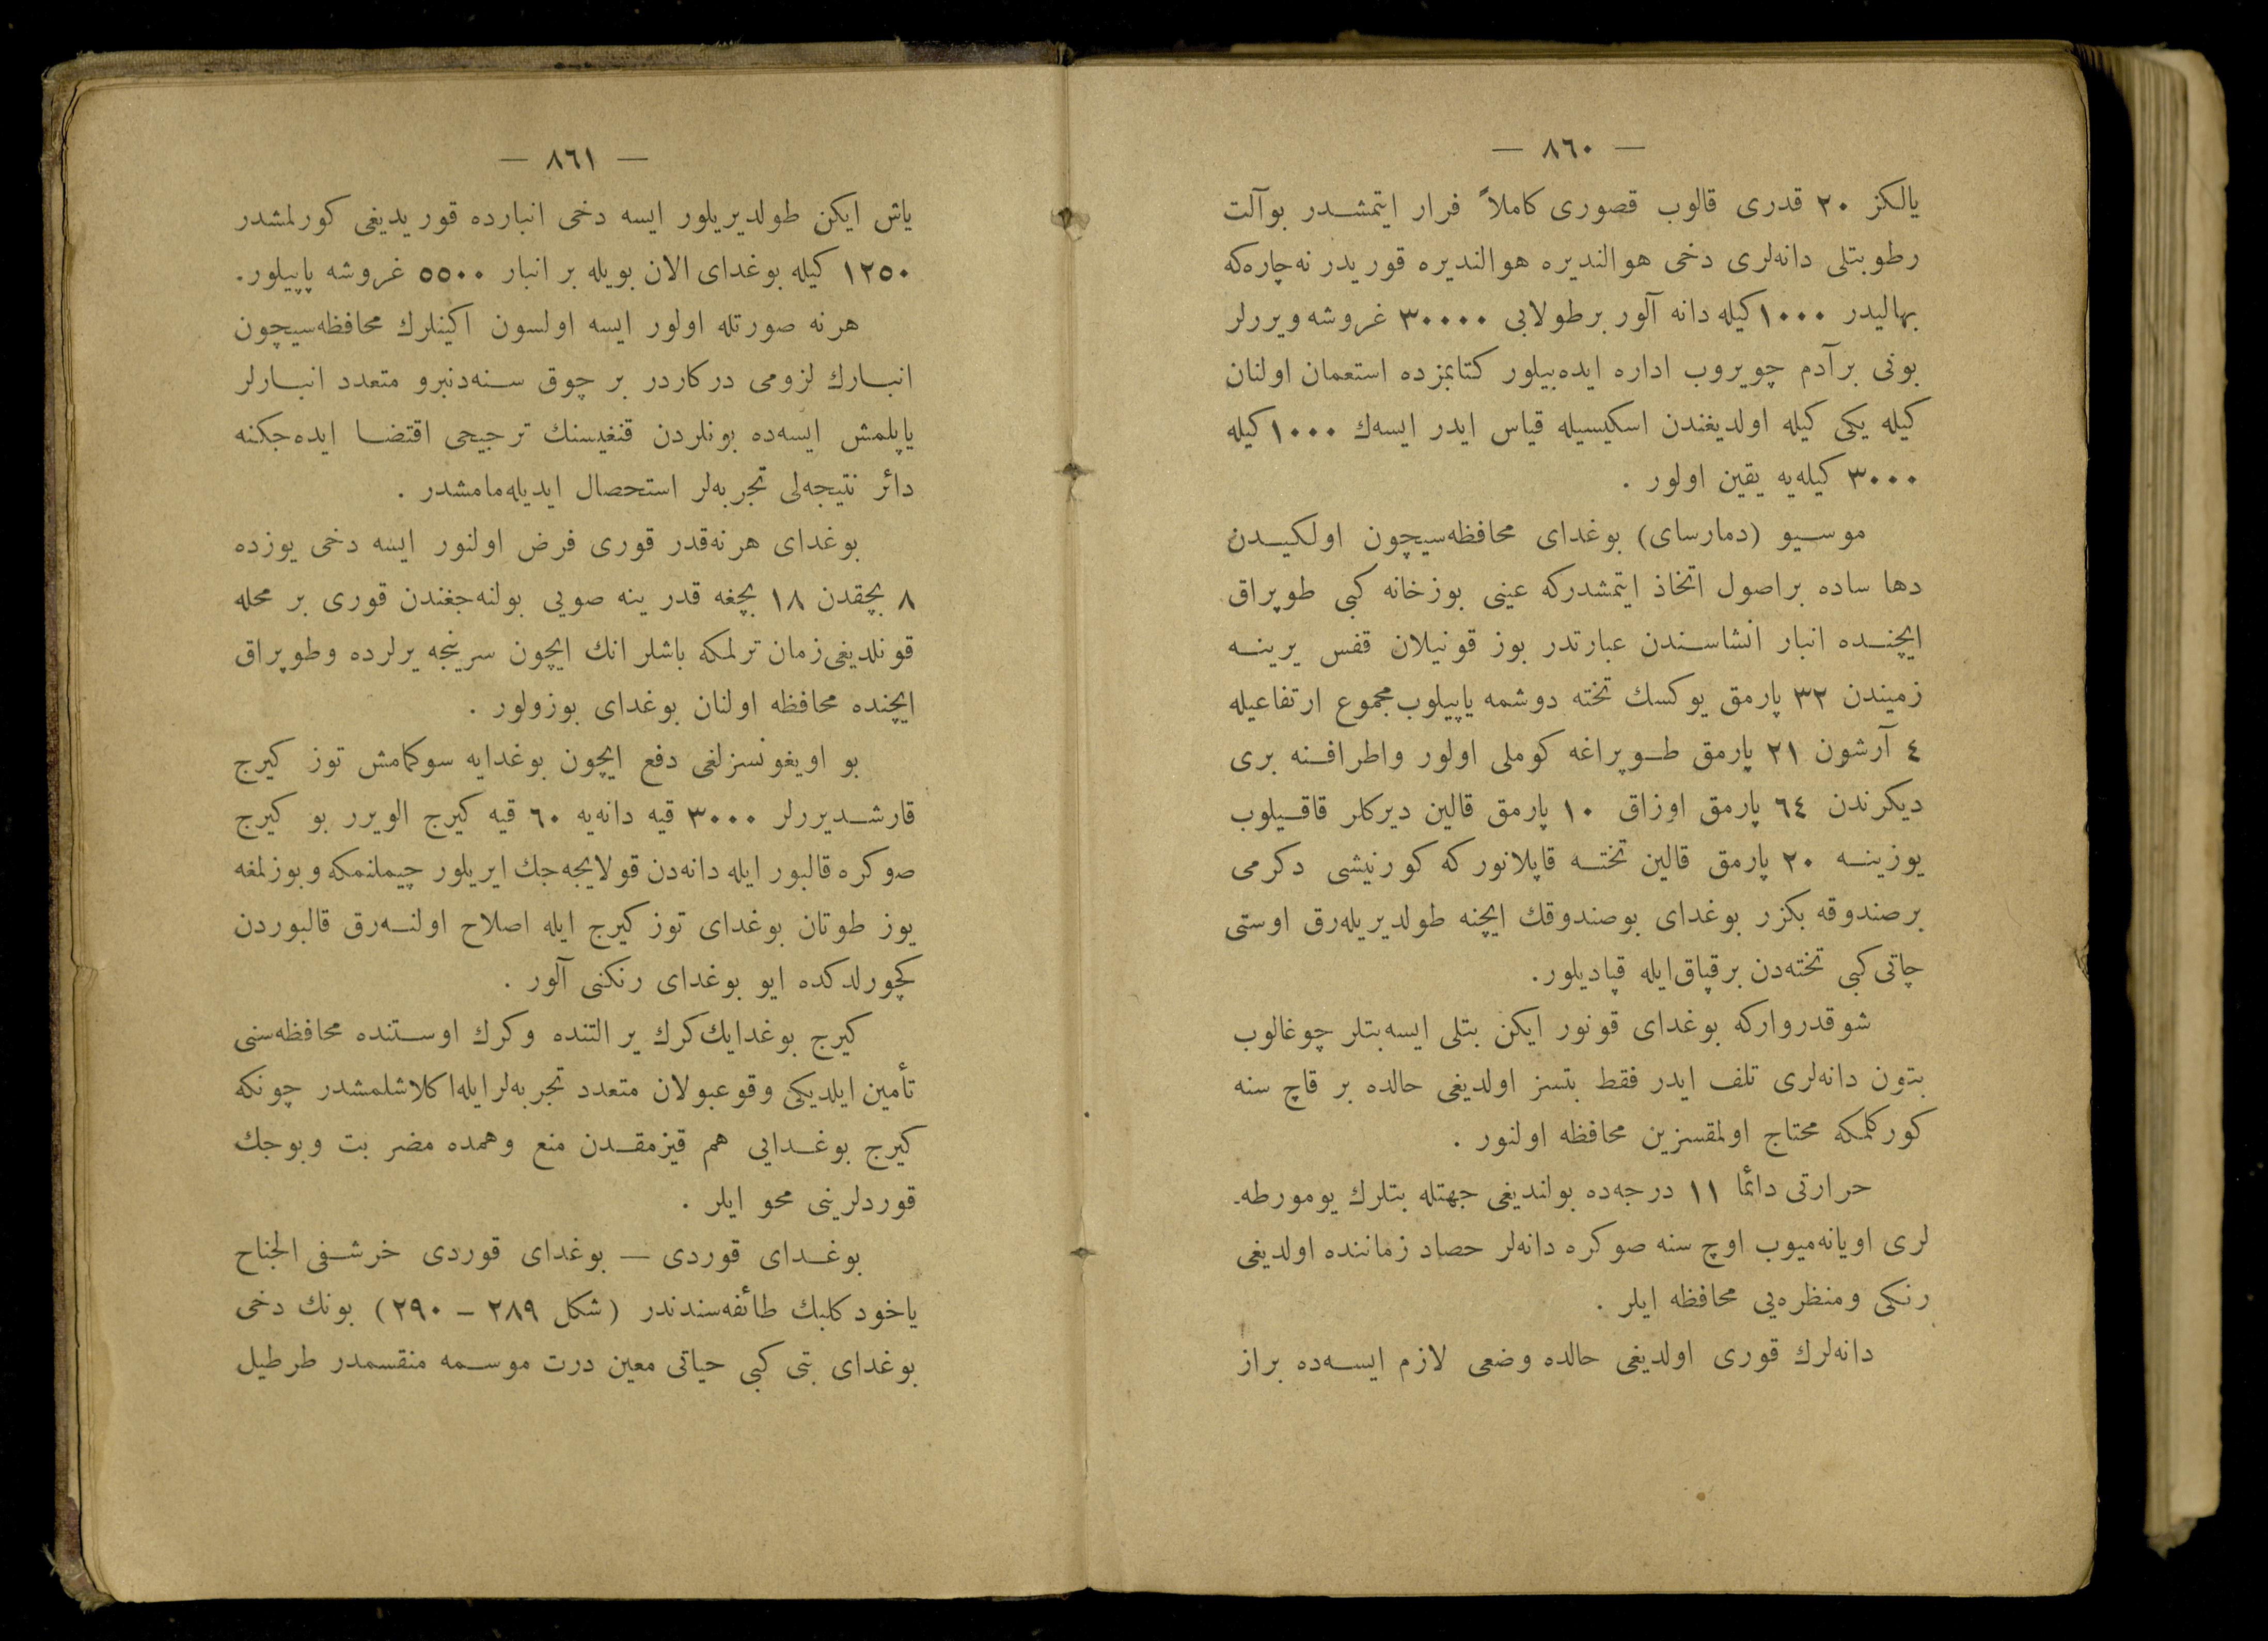 — ٨٦٠ —
يالكز ٢٠ قدرى قالوب قصورى كاملاً فرار ايتمشدر بوآلت
رطوبتلى دانه‌لرى دخى هوالنديره هوالنديره قوريدر نه‌چاره‌كه
بهاليدر ١٠٠٠ كيله دانه آلور برطولابى ٣٠٠٠٠ غروشه ويررلر
بونى برآدم چويروب اداره ايده‌بيلور كتابمزده استعمان اولنان
كيله يكى كيله اولديغندن اسكيسيله قياس ايدر ايسه‌ك ١٠٠٠ كيله
٣٠٠٠ كيله‌يه يقين اولور .
موسيو (دمارساى) بوغداى محافظه‌سيچون اولكيدن
دها ساده براصول اتخاذ ايتمشدركه عينى بوزخانه كبى طوپراق
ايچنده انبار انشاسندن عبارتدر بوز قونيلان قفس يرينه
زميندن ٣٢ پارمق يوكسك تخته دوشمه ياپيلوب مجموع ارتفاعيله
٤ آرشون ٢١ پارمق طوپراغه كوملى اولور واطرافنه برى
ديكرندن ٦٤ پارمق اوزاق ١٠ پارمق قالين ديركلر قاقيلوب
يوزينه ٢٠ پارمق قالين تخته قاپلانور كه كورنيشى دكرمى
برصندوقه بكزر بوغداى بوصندوقك ايچنه طولديريله‌رق اوستى
چاتى كبى تخته‌دن برقپاق ايله قپاديلور.
شوقدرواركه بوغداى قونور ايكن بتلى ايسه بتلر چوغالوب
بتون دانه‌لرى تلف ايدر فقط بتسز اولديغى حالده بر قاچ سنه
كوركلمكه محتاج اولمقسزين محافظه اولنور .
حرارتى دائما ١١ درجه‌ده بولنديغى جهتله بتلرك يومورطه-
لرى اويانه‌ميوب اوچ سنه صوكره دانه‌لر حصاد زماننده اولديغى
رنكى ومنظره‌يى محافظه ايلر .
دانه‌لرك قورى اولديغى حالده وضعى لازم ايسه‌ده براز
— ٨٦١ —
ياش ايكن طولديريلور ايسه دخى انبارده قوريديغى كورلمشدر
١٢٥٠ كيله بوغداى الان بويله بر انبار ٥٥٠٠ غروشه پاپيلور.
هرنه صورتله اولور ايسه اولسون اكينلرك محافظه‌سيچون
انبارك لزومى دركاردر بر چوق سنه‌دنبرو متعدد انبارلر
ياپلمش ايسه‌ده بونلردن قنغيسنك ترجيحى اقتضا ايده‌جكنه
دائر نتيجه‌لى تجربه‌لر استحصال ايديله‌مامشدر .
بوغداى هرنه‌قدر قورى فرض اولنور ايسه دخى يوزده
٨ بچقدن ١٨ بچغه قدر ينه صويى بولنه‌جغندن قورى بر محله
قونلديغى زمان ترلمكه باشلر انك ايچون سرينجه يرلرده وطوپراق
ايچنده محافظه اولنان بوغداى بوزولور .
بو اويغونسزلغى دفع ايچون بوغدايه سوكمامش توز كيرج
قارشديررلر ٣٠٠٠ قيه دانه‌يه ٦٠ قيه كيرج الويرر بو كيرج
صوكره قالبور ايله دانه‌دن قولايجه‌جك ايريلور چيملنمكه وبوزلمغه
يوز طوتان بوغداى توز كيرج ايله اصلاح اولنه‌رق قالبوردن
كچورلدكده ايو بوغداى رنكنى آلور .
كيرج بوغدايك كرك ير التنده وكرك اوستنده محافظه‌سنى
تأمين ايلديكى وقوعبولان متعدد تجربه‌لر ايله اكلاشلمشدر چونكه
كيرج بوغدايى هم قيزمقدن منع وهمده مضر بت وبوجك
قوردلرينى محو ايلر .
بوغداى قوردى — بوغداى قوردى خرشفى الجناح
ياخود كلبك طائفه‌سندندر (شكل ٢٨٩ – ٢٩٠) بونك دخى
بوغداى بتى كبى حياتى معين درت موسمه منقسمدر طرطيل